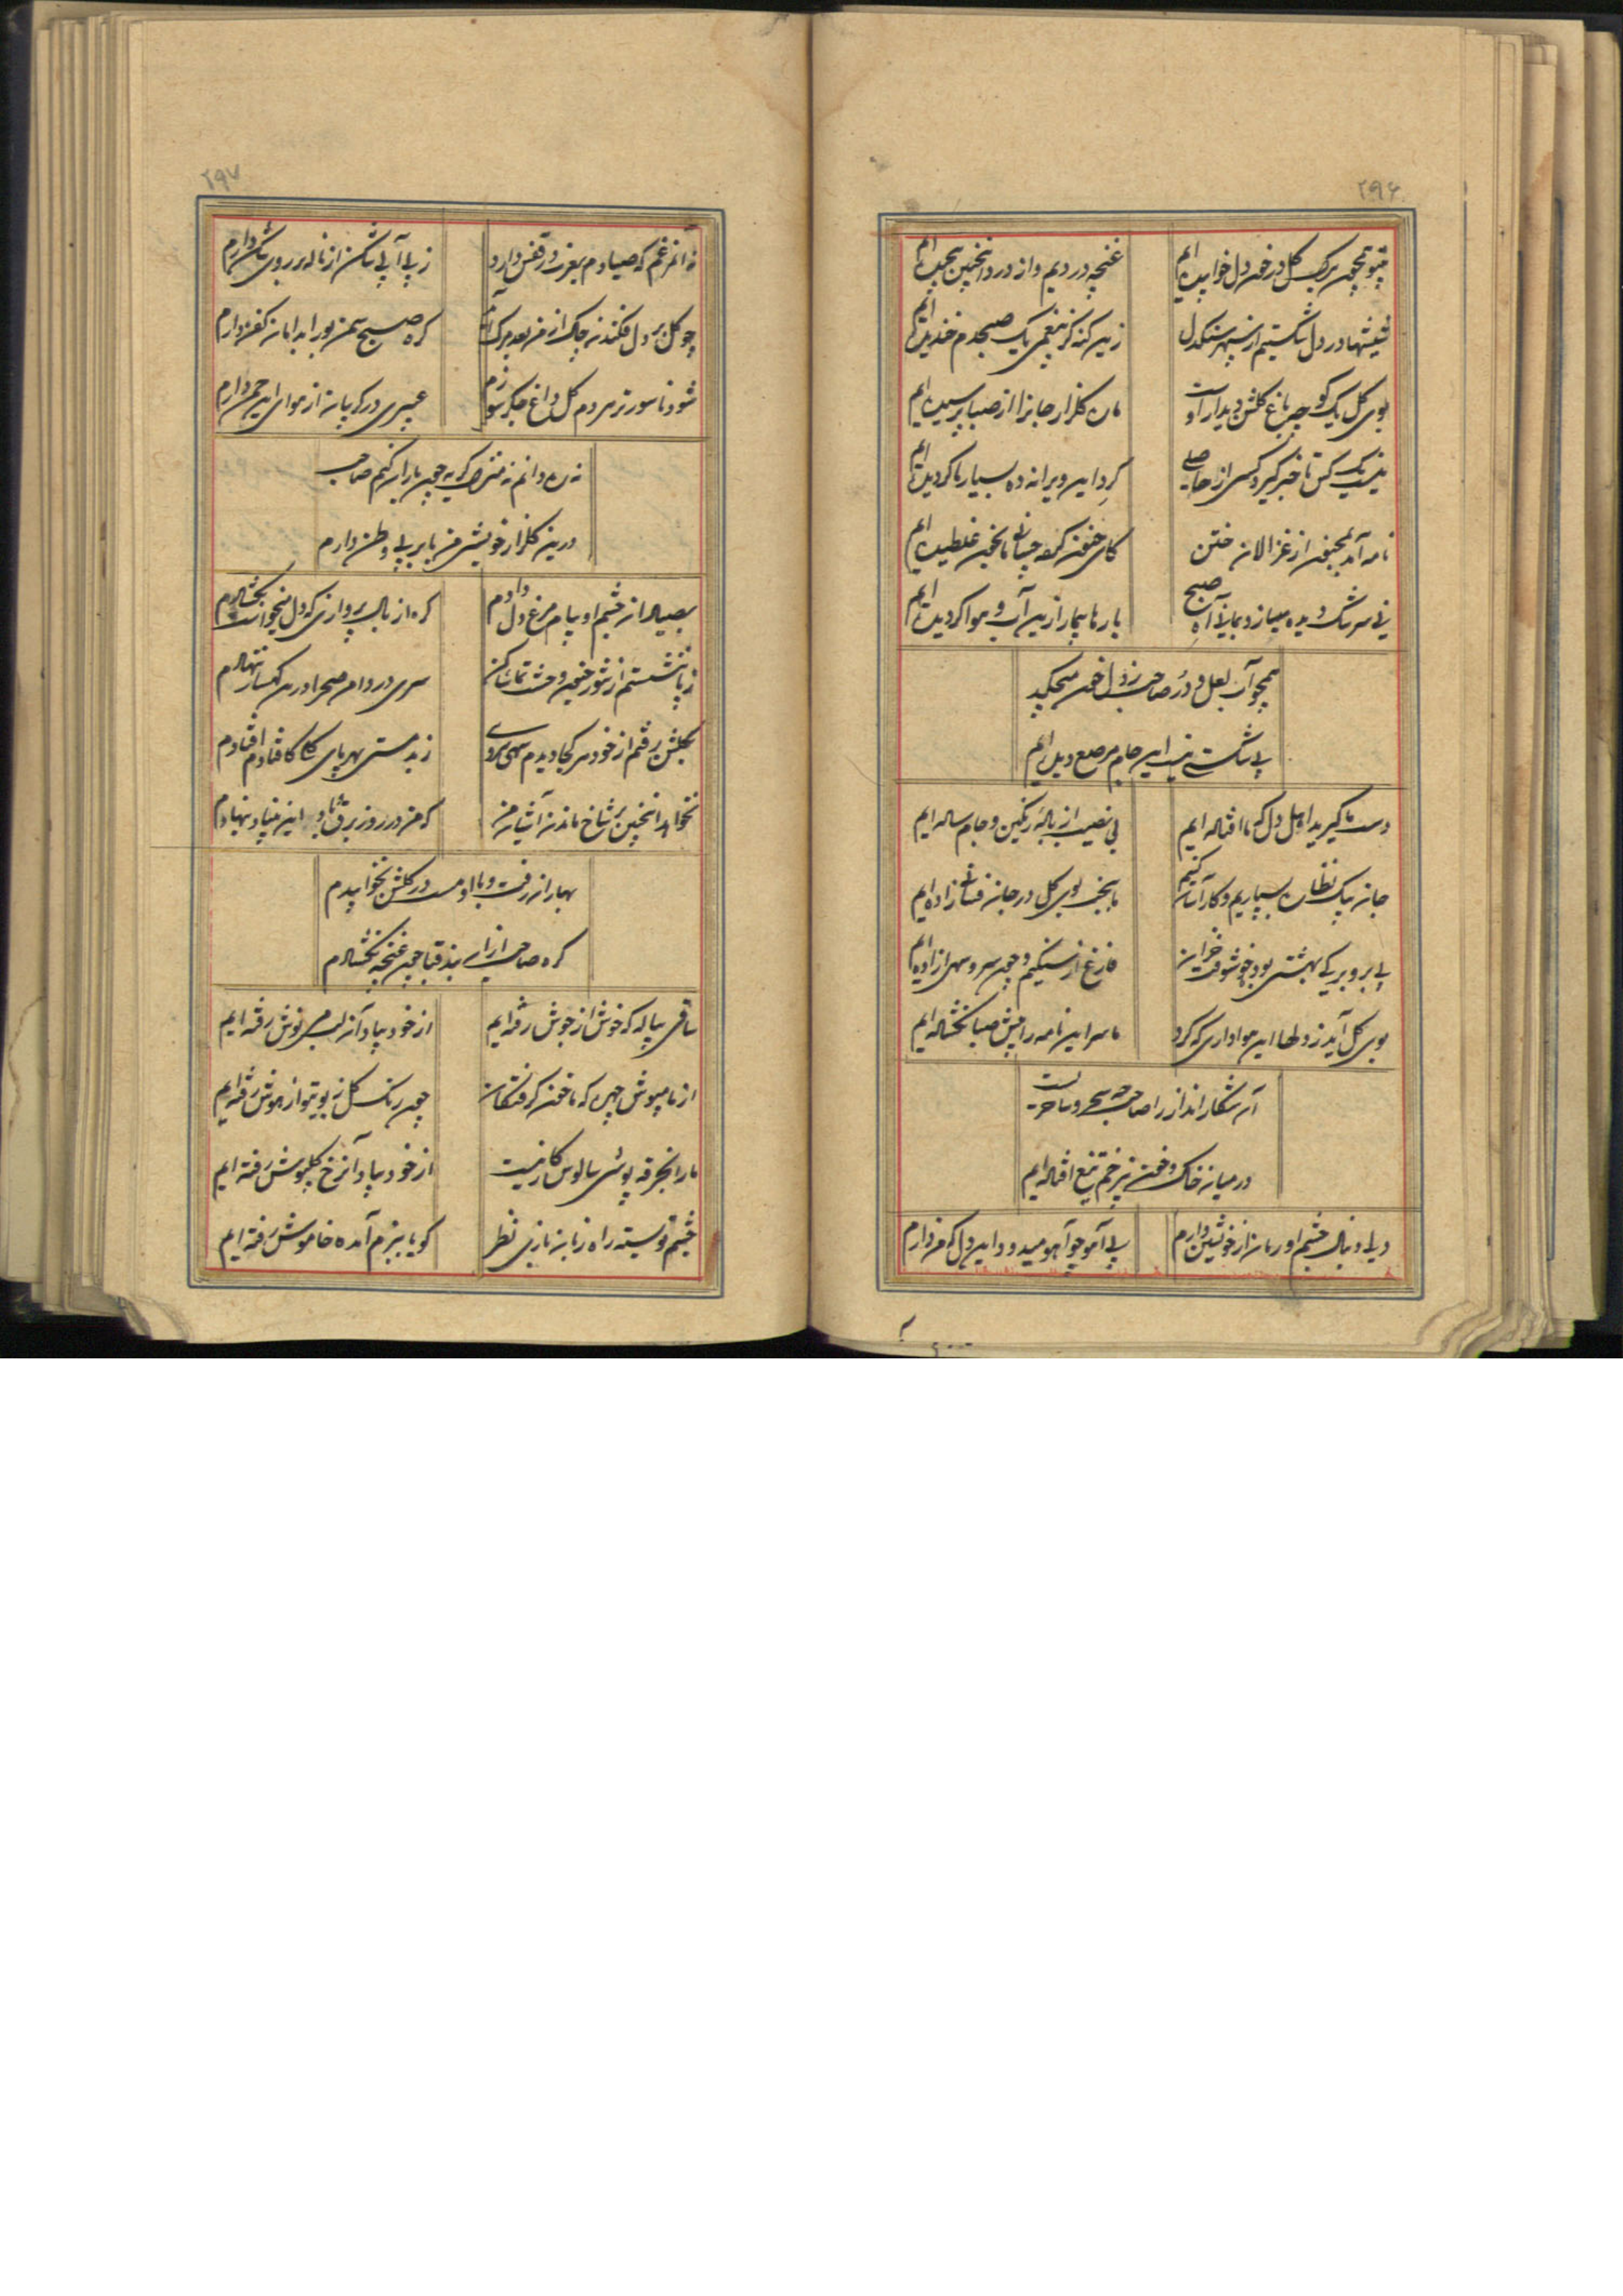 ۲۹۶
بیتو همچون برک گل در خون دل خوابیده‌ایم
غنچه دردیم و از درد انچنین پیچیده‌ایم
شیشها در دل شکستیم از سپهر سنکدل
زین کنه کز بیغمی یک صبحدم خندیده‌ایم
بوی گل یک کوچه باغ گلشن دیدار اوست
ما ره گلزار جانرا از صبا پرسیده‌ایم
نیست یک کس تا خبر گیرد کسی از حاصلی
گرد این ویرانه ده بسیار ما گردیده‌ایم
نامه آمد بمجنون از غزالان ختن
کای جنون کم‌ما بخون غلطیده‌ایم
بی سرشک دیده میسازد بما نی آه صبح
بارها بیمار ازین آب و هوا گردیده‌ایم
همچو آب لعل و در صاحب ز دل خون میچکد
بی شکستی نیست این جام مرصع دیده‌ایم
دست ما گیرید اهل دل که ما افتاده‌ایم
بی نصیب از باده رنگین و جام ساده‌ایم
جان بیک نظاره بسپاریم و کار آسان کنیم
ما بتخت بوی گل در جان فشانی زاده‌ایم
بی بر و برگی بهشتی بود خوش وقت خزان
فارغ از سنگیم و چون سرو سهی ازاده‌ایم
بوی گل آید ز دلها این هواداری که کرد
ما سر این نامه را پیش صبا نکشاده‌ایم
آن شکار انداز را صاحب چه رحمست
در میان خاک و خون زخم تیغ افتاده‌ایم
دلی دنبال چشم او رمان از خویشتن دارم
پی آهو چو آهو میدود این دل که من دارم
۲۹۷
نه انمرغم که صیادم بغربت در قفس دارد
ز بی آبی شکن از ناله بر روی شکن دارم
چو گل بر دل فکندند چاک از من بعد مرگ
گره صبح سمن بو را بدامان کفن دارم
شود ناسور تر هر دم گل داغ جکر سوزم
عبیری در گریبان از هوای این چمن دارم
نه ره دانم نه منزل گریه چون باران کنم صاحب
درین گلزار خویشم من بابر بی وطن دارم
بصیاد از چشم او پیام مرغ دل دادم
گره از بال پروازی که دل میخواست نکشادم
ز پا ننشستم از شور جنون وحشت تماشا کن
سری در دامن صحرا درین کهسار ننهادم
بگلشن رفتم از خود هر کجا دیدم سهی سروی
ز بدمستی بهر پای گل کافتادم افتادم
نخواهد انچنین بر شاخ ماندن آشیان من
که من در روز برق و باد این بنیاد بنهادم
بهار از رفت و با او مست در گلشن نخوابیدم
گره صاحب ازان بند قبا چون غنچه نکشادم
ساقی پیاله که خوش از جوش رفته‌ایم
از خود بیاد آن لب می نوش رفته‌ایم
از ما مپوش چهره که ما خون گرفتگان
چون رنگ گل ز بویتو از هوش رفته‌ایم
ما را بخرقه پوشی سالوس کار نیست
از خود بیاد آن رخ گلپوش رفته‌ایم
چشم تو بسته راه زبان بازی نظر
گویا ببزم آمده خاموش رفته‌ایم